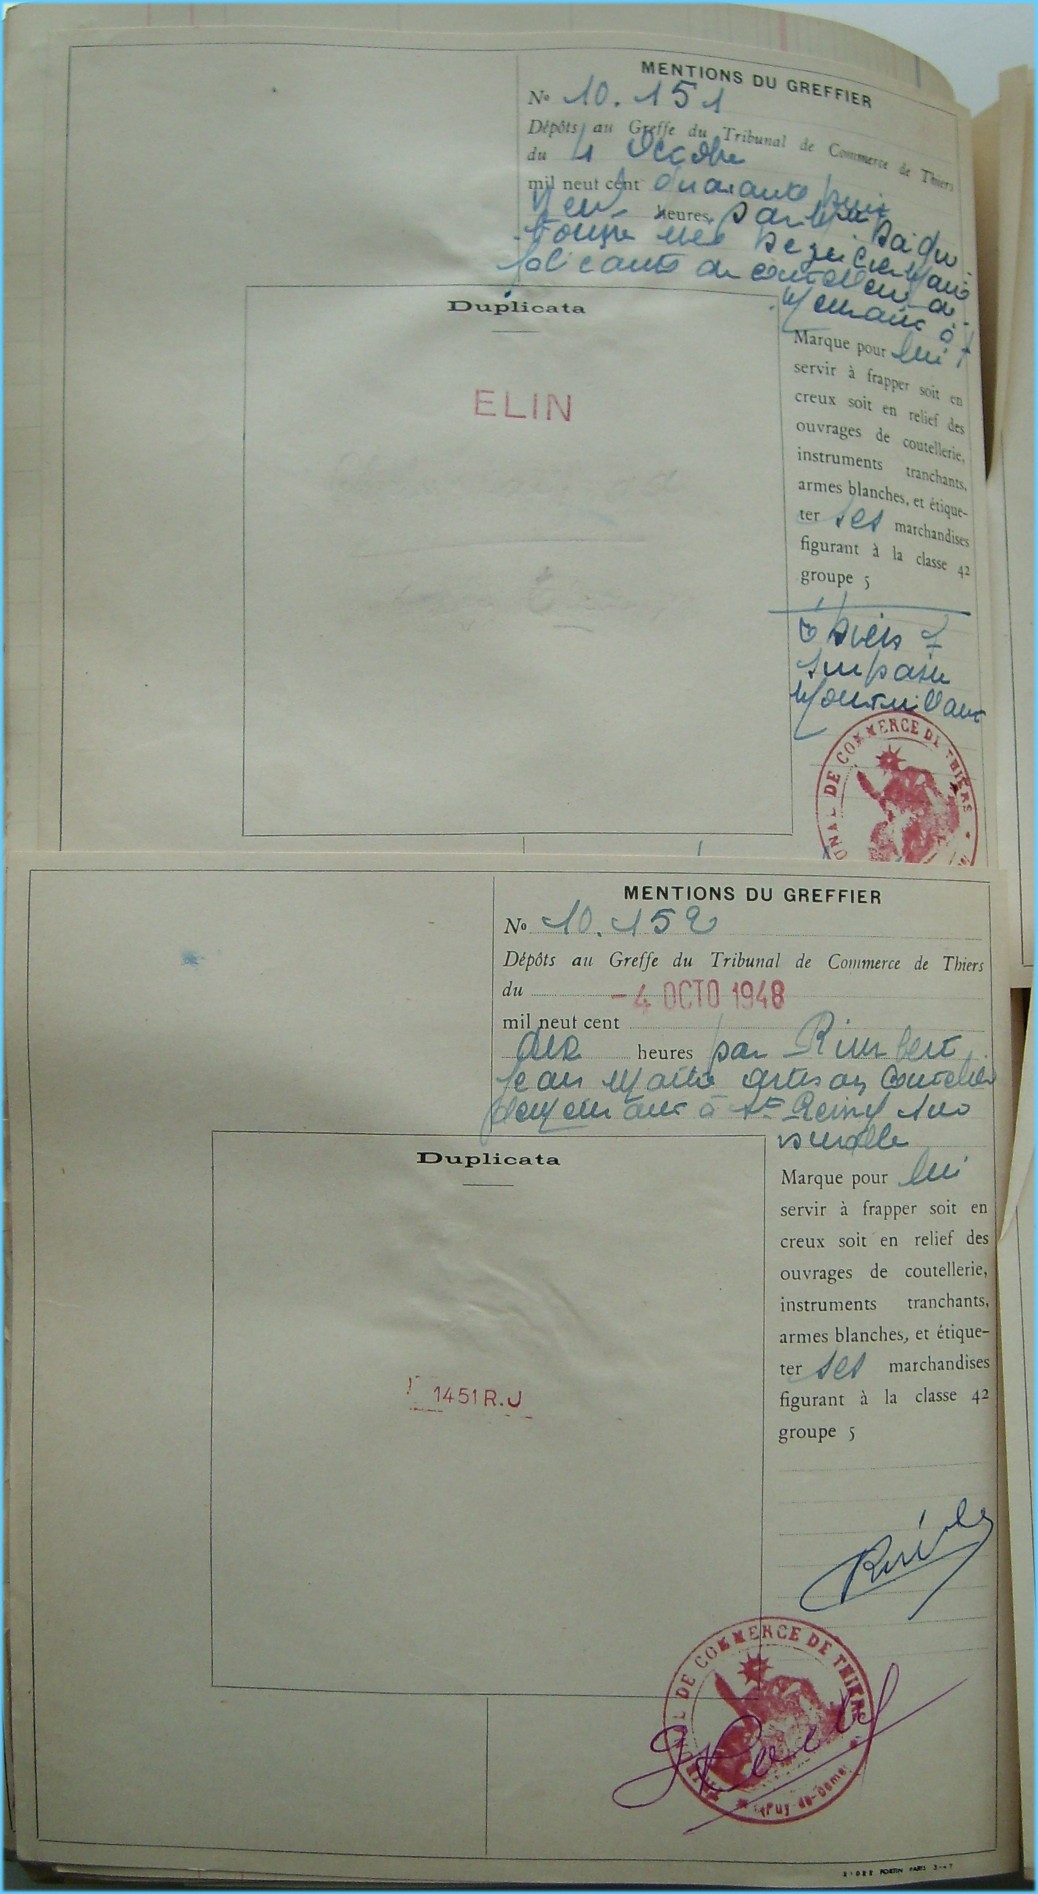 MENTIONS DU GREFFIER
No 10.151
Dépôts au Greffe du Tribunal de Commerce de Thiers
du 4 Octobre
mil neuf cent quarante huit
neuf heures, par
fabricante de coutellerie
à
Duplicata
Marque pour lui
ELIN
servir à frapper soit en
creux soit en relief des
ouvrages de coutellerie,
instruments tranchants,
armes blanches, et étique-
ter ses marchandises
figurant à la classe 42
groupe 5
Thiers 7
impasse
DE COMMERCE DE THIERS
MENTIONS DU GREFFIER
No 10.152
Dépôts au Greffe du Tribunal de Commerce de Thiers
du -4 OCTO 1948
mil neuf cent
dix heures par Rimbert
Jean Marie artisan coutelier
demeurant à St Remy sur
Durolle
Duplicata
Marque pour lui
servir à frapper soit en
creux soit en relief des
ouvrages de coutellerie,
instruments tranchants,
armes blanches, et étique-
ter ses marchandises
figurant à la classe 42
groupe 5
1451 R.J
DE COMMERCE DE THIERS
Puy-de-Dôme